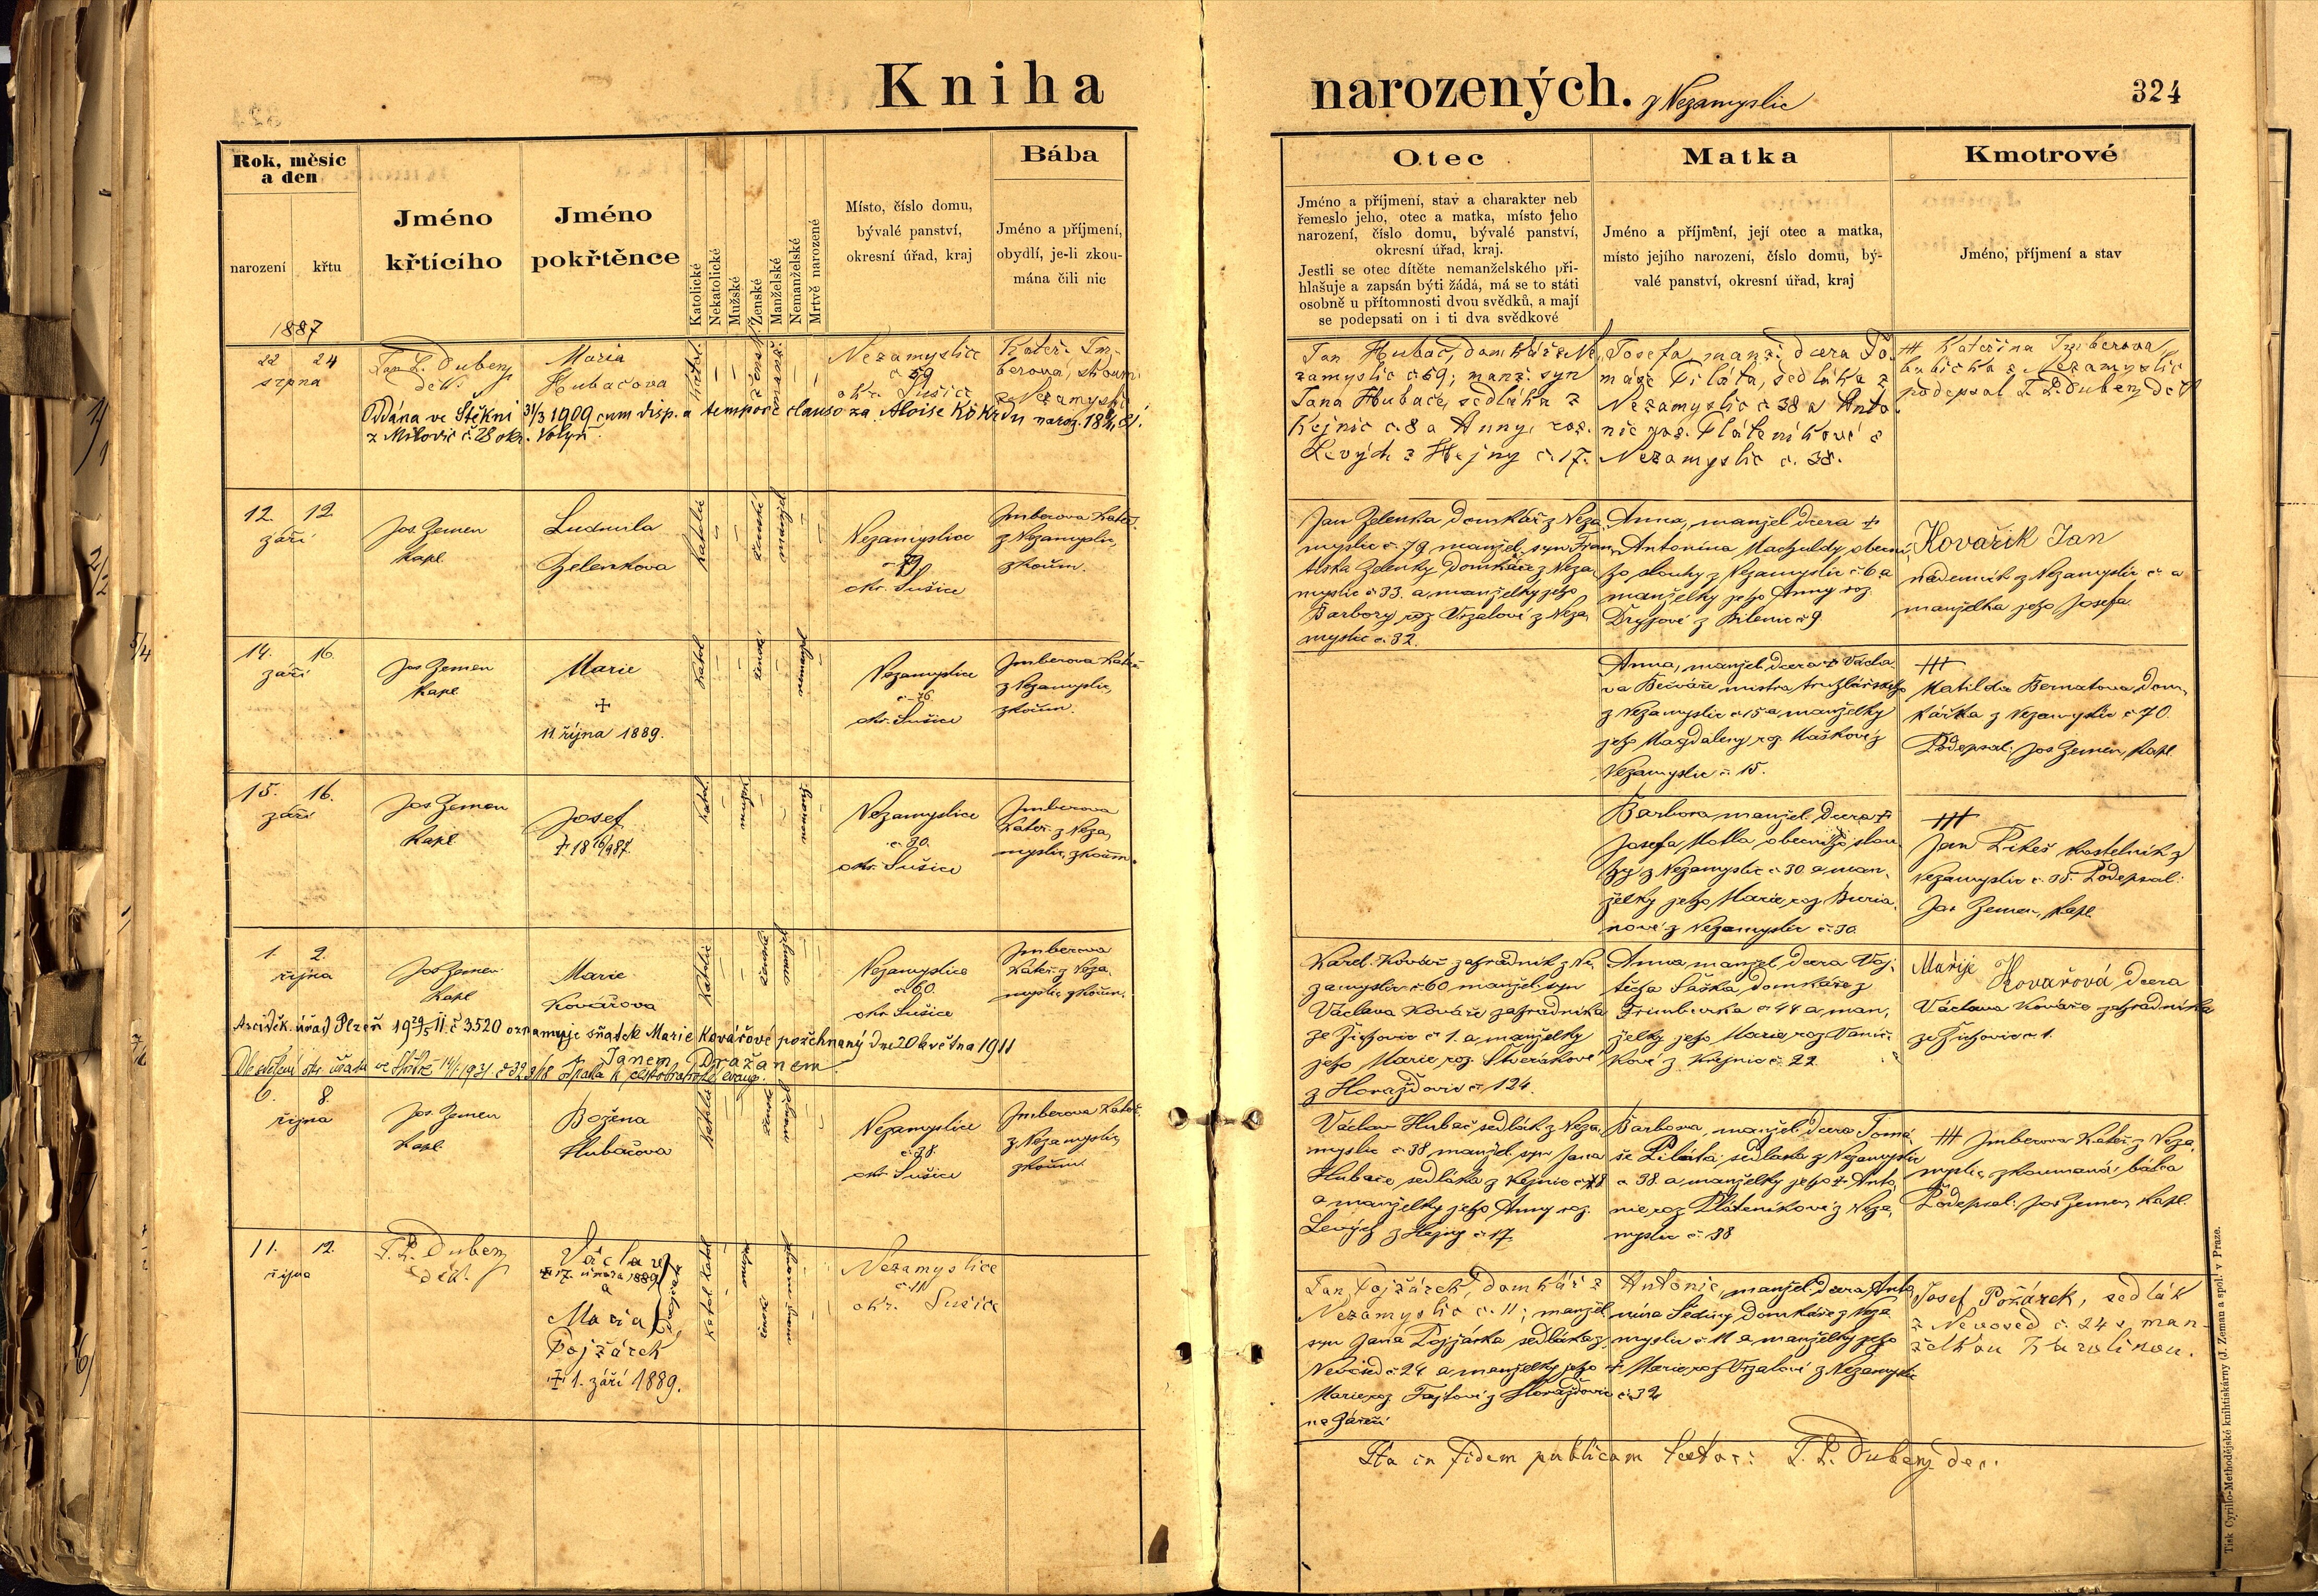 Kniha narozených. z Nezamyslic
324
Rok, měsíc
a den
narození
křtu
Jméno
křtícího
Jméno
pokřtěnce
Katolické
Nekatolické
Mužské
Ženské
Manželské
Nemanželské
Mrtvě narozené
Místo, číslo domu,
bývalé panství,
okresní úřad, kraj
Bába
Jméno a příjmení,
obydlí, je-li zkou-
mána čili nic
Otec
Jméno a příjmení, stav a charakter neb
řemeslo jeho, otec a matka, místo jeho
narození, číslo domu, bývalé panství,
okresní úřad, kraj.
Jestli se otec dítěte nemanželského při-
hlašuje a zapsán býti žádá, má se to státi
osobně u přítomnosti dvou svědků, a mají
se podepsati on i ti dva svědkové
Matka
Jméno a příjmení, její otec a matka,
místo jejího narození, číslo domu, bý-
valé panství, okresní úřad, kraj
Kmotrové
Jméno, příjmení a stav
1887
22 24
srpna
Jan L. Dubený
děk.
Maria
Hubačova
Nezamyslice
č 59
okr. Sušice
Kateř. Im-
berova, zkoum.
z Nezamyslic
Oddána ve Štěkni 31/3 1909 cum disp. a tempore clauso za Aloise Kokrdu naroz.
z Milovic č. 28 okr. Volyň
Jan Hubač, domkář z Ne-
zamyslic č 59; manž. syn
Jana Hubače, sedláka z
Kejnic č. 8 a Anny, roz.
Levých z Hejny č. 17.
Josefa, manž. dcera To-
máše Piláta, sedláka z
Nezamyslic č 38 a Anto-
nie roz. Pláteníkové z
Nezamyslic č. 38.
+++ Kateřina Imberova,
babička z Nezamyslic
podepsal J. L. Dubený děk
12. 12.
září
Jos. Zemen
kapl.
Ludmila
Zelenkova
Katolic
ženské
manžel
Nezamyslice
č 79
okr. Sušice
Imberova Kateř.
z Nezamyslic,
zkoum.
Jan Zelenka domkář z Neza-
myslic č. 79 manžel. syn Fran-
tiška Zelenky domkáře z Neza-
myslic č 33. a manželky jeho
Barbory roz Vrzalové z Neza-
myslic č. 32.
Anna, manžel. dcera +
Antonína Machuldy, obecní-
ho slouhy z Nezamyslic č 6 a
manželky jeho Anny roz.
z Bílenic č 9
Kovařík Jan
nádenník z Nezamyslic č a
manželka jeho Josefa.
14. 16.
září
Jos Zemen
kapl
Marie
+
11. října 1889.
Katol
ženské
nemanžel
Nezamyslice
č. 76.
okr. Sušice
Imberova Kateř.
z Nezamyslic,
zkoum.
Anna, manžel dcera + Václa-
va Bečváře mistra truhlářského
z Nezamyslic č 15 a manželky
jeho Magdaleny roz. Maškové z
Nezamyslic č. 15.
+++
Matilda Bernatova, dom-
kářka z Nezamyslic č 70.
Podepsal: Jos Zemen, kapl.
15. 16.
září
Jos Zemen
kapl
Josef
+ 18 16/9 87.
Katol.
mužsk
Nezamyslice
č. 30.
okr. Sušice
Imberova
Kateř. z Neza-
myslic, zkoum.
Barbora, manžel. dcera +
Josefa Motla obecního slou-
hy z Nezamyslic č 30. a man-
želky jeho Marie, roz. Buria-
nové z Nezamyslic č. 30.
+++
Jan Pikeš kostelník z
Nezamyslic č. 35. Podepsal:
Jos Zemen, kapl
1. 2.
října
Jos Zemen
kapl
Marie
Kovářova
Katolic
ženské
Nezamyslice
č 60.
okr. Sušice
Imberova
Kateř. z Neza-
myslic zkoum.
Arciděk. úřad Plzeň 19 29/5 11. č 3520 oznamuje sňatek Marie Kovářové požehnaný dne 20 května 1911
s Janem Dražanem
Dle sdělení okr. úřadu ve Stříbře 14/1. 1931. č 323/18 odpadla k českobratrské evang.
Karel Kovář zahradník z Ne-
zamyslic č 60 manžel. syn
Václava Kováře zahradníka
ze Žichovic č 1. a manželky
jeho Marie roz. Skvrákové
z Horažďovic č 124.
Anna, manžel. dcera Voj-
těcha Saška domkáře z
č 44 a man-
želky jeho Marie, roz. Vaníč-
kové z Kejnic č. 22.
Mařije Kovařová dcera
Václava Kováře zahradníka
ze Žichovic č 1.
6. 8.
října
Jos. Zemen
kapl.
Božena
Hubačova
Katolic
ženské
Nezamyslice
č. 38.
okr Sušice
Imberova Kateř.
z Nezamyslic,
zkoum.
Václav Hubač sedlák z Neza-
myslic č 38 manžel syn Jana
Hubače sedláka z Kejnic č 8
a manželky jeho Anny roz.
Levých z Hejny č 17
Barbora, manžel. dcera Tomá-
še Piláta, sedláka z Nezamyslic
č 38. a manželky jeho + Anto-
nie roz Pláteníkové z Neza-
myslic č. 38
+++ Imberova Kateř. z Neza-
myslic, zkoumaná bába
Podepsal: Jos Zemen, kapl.
11. 12.
října
J. L. Dubený
děk.
Václav
+ 17. února 1889
a
Maria
dvojčata
Pojžárek
+ 1. září 1889.
Katol. Katol
ženské
Nezamyslice
č. 11
okr. Sušice
Jan Pojžárek, domkář z
Nezamyslic č. 11; manžel.
syn Jana Pojžárka sedláka z
Nevosed č. 24 a manželky jeho
Marie roz. Fajtové z Horažďovic
na Zářečí
Antonie, manžel. dcera Anto-
nína Šediny domkáře z Neza-
myslic č 11 a manželky jeho
+ Marie roz. Vrzalové z Nezamyslic
č. 32
Josef Požárek, sedlák
z Nevosed č. 24 s man-
želkou Karolinou.
Ita in fidem publicam testor: J. L. Dubený děk.
Tisk Cyrillo-Methodějské knihtiskárny (J. Zeman a spol.) v Praze.